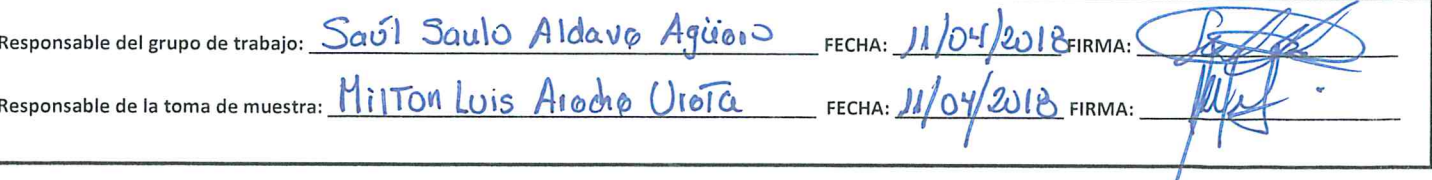 Responsable del grupo de trabajo: Saúl Saulo Aldave Agüero FECHA: 11/04/2018 FIRMA:
Responsable de la toma de muestra: Milton Luis FECHA: 11/04/2018 FIRMA: